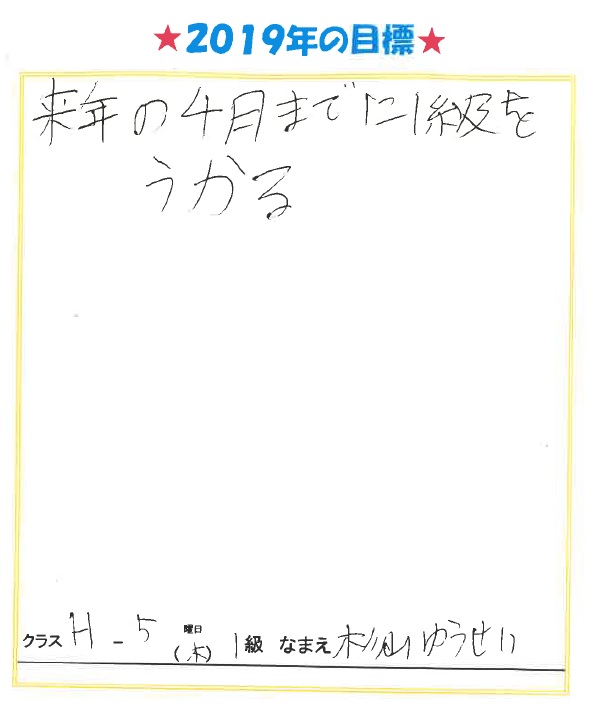 ★2019年の目標★
来年の4月までに1級を
うかる
クラス H-5 曜日(木) 1級 なまえ 杉山ゆうせい